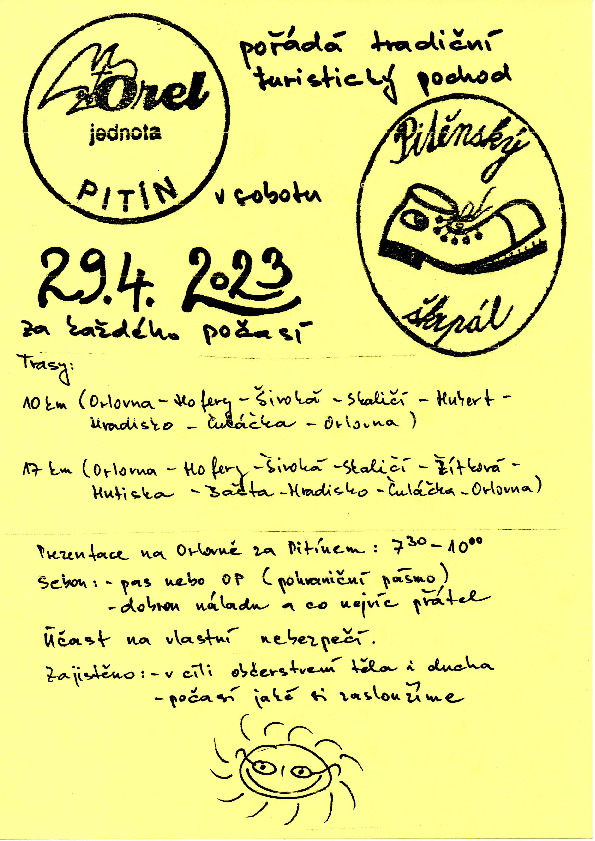 Orel
jednota
PITÍN
pořádá tradiční
turistický pochod
Pitěnský
škrpál
v sobotu
29.4. 2023
za každého počasí
Trasy:
10 km (Orlovna - Hofery - Široká - Skaličí - Hubert -
Hradisko - Čuláčka - Orlovna)
17 km (Orlovna - Hofery - Široká - Skaličí - Žítková -
Hutiska - Bašta - Hradisko - Čuláčka - Orlovna)
Prezentace na Orlovně za Pitínem: 7³⁰ - 10⁰⁰
Sebou: - pas nebo OP (pohraniční pásmo)
- dobrou náladu a co nejvíc přátel
Účast na vlastní nebezpečí.
Zajištěno: - v cíli občerstvení těla i ducha
- počasí jaké si zasloužíme